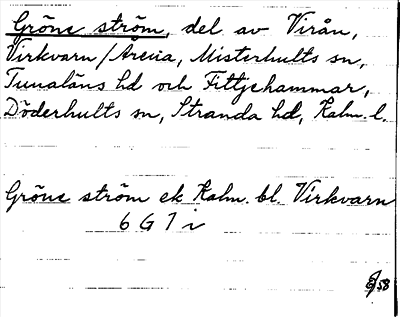 Gröne ström, del av Virån,
Virkvarn/Arena, Misterhults sn,
Tunaläns hd och Fittjehammar,
Döderhults sn, Stranda hd, Kalm. l.
Gröne ström ek Kalm. bl. Virkvarn
6 G 7 i
58